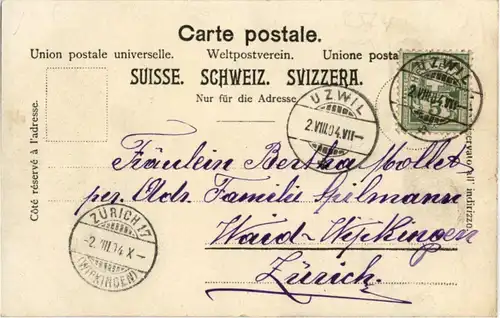 Carte postale.
Union postale universelle. Weltpostverein. Unione posta
SUISSE. SCHWEIZ. SVIZZERA.
Nur für die Adresse
UZWIL
2.VIII.04.VII-
UZWIL
2.VIII.04.VII-
Côté réservé à l'adresse.
servato all' indirizzo.
Fräulein Bertha Mollet
per Ads. Familie Spilmann
Waid-Wipkingen
Zürich.
ZÜRICH 17
-2.VIII.04 X-
(WIPKINGEN)